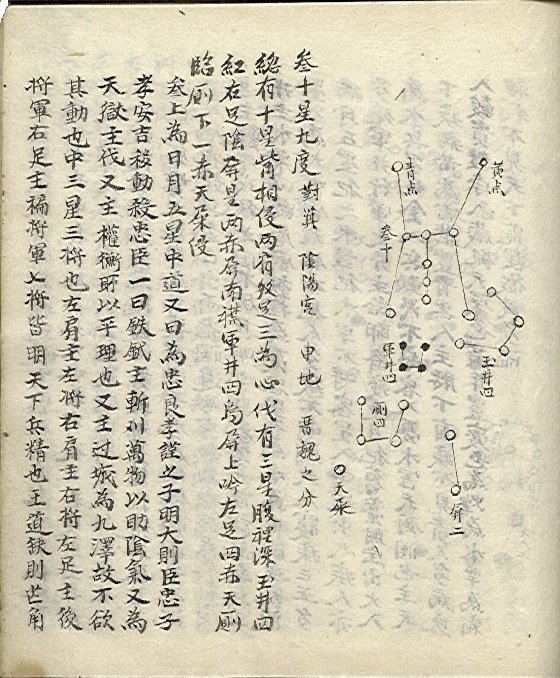 黄点
青点
叁十
玉井四
軍井四
厠四
屏二
天屎
叁十星九度 對箕 陰陽宮 申地 晋魏之分
緫有十星觜相侵兩肩雙足三為心伐有三星腹裡深玉井四
紅右足陰屏星兩赤屏南襟軍井四烏屏上吟左足四赤天厠
臨厠下一赤天屎侵
叁上為日月五星中道又曰為忠良孝謹之子明大則臣忠子
孝安吉移動殺忠臣一曰鈇鉞主斬刈萬物以助陰氣又為
天獄主伐又主權衡所以平理也又主边城為九澤故不欲
其動也中三星三将也左肩主左将右肩主右将左足主後
将軍右足主褊将軍七将皆明天下兵精也王道缺則芒角